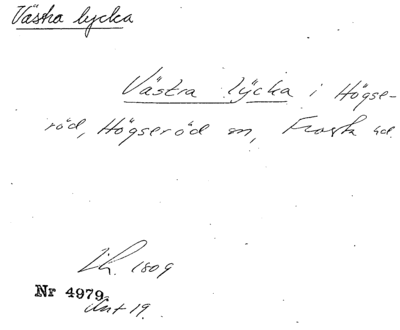 Västra lycka
Västra lycka i Högse-
röd, Högseröd sn, Frosta hd.
1809
Nr 4979.
Akt 19.